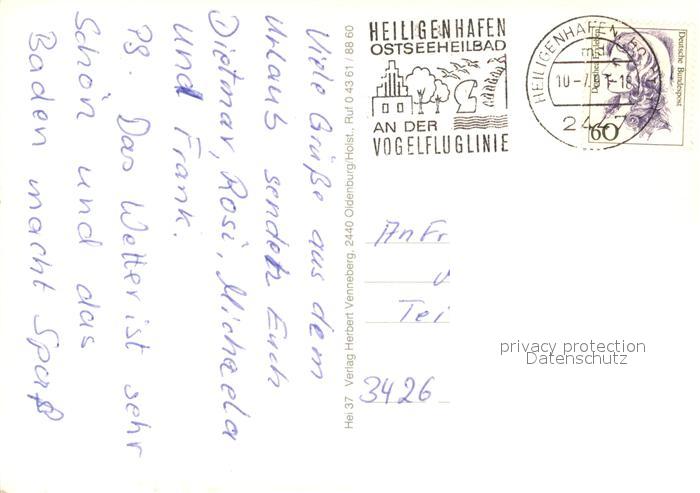 Viele Grüße aus dem
Urlaub senden Euch
Dietmar, Rosi, Michaela
und Frank.
PS. Das Wetter ist sehr
Schön und das
Baden macht Spaß
Hei 37 Verlag Herbert Venneberg, 2440 Oldenburg/Holst., Ruf 0 43 61 / 88 60
HEILIGENHAFEN
OSTSEEHEILBAD
AN DER
VOGELFLUGLINIE
HEILIGENHAFEN
Deutsche Bundespost
60
An Fr
Tei
3426
privacy protection
Datenschutz